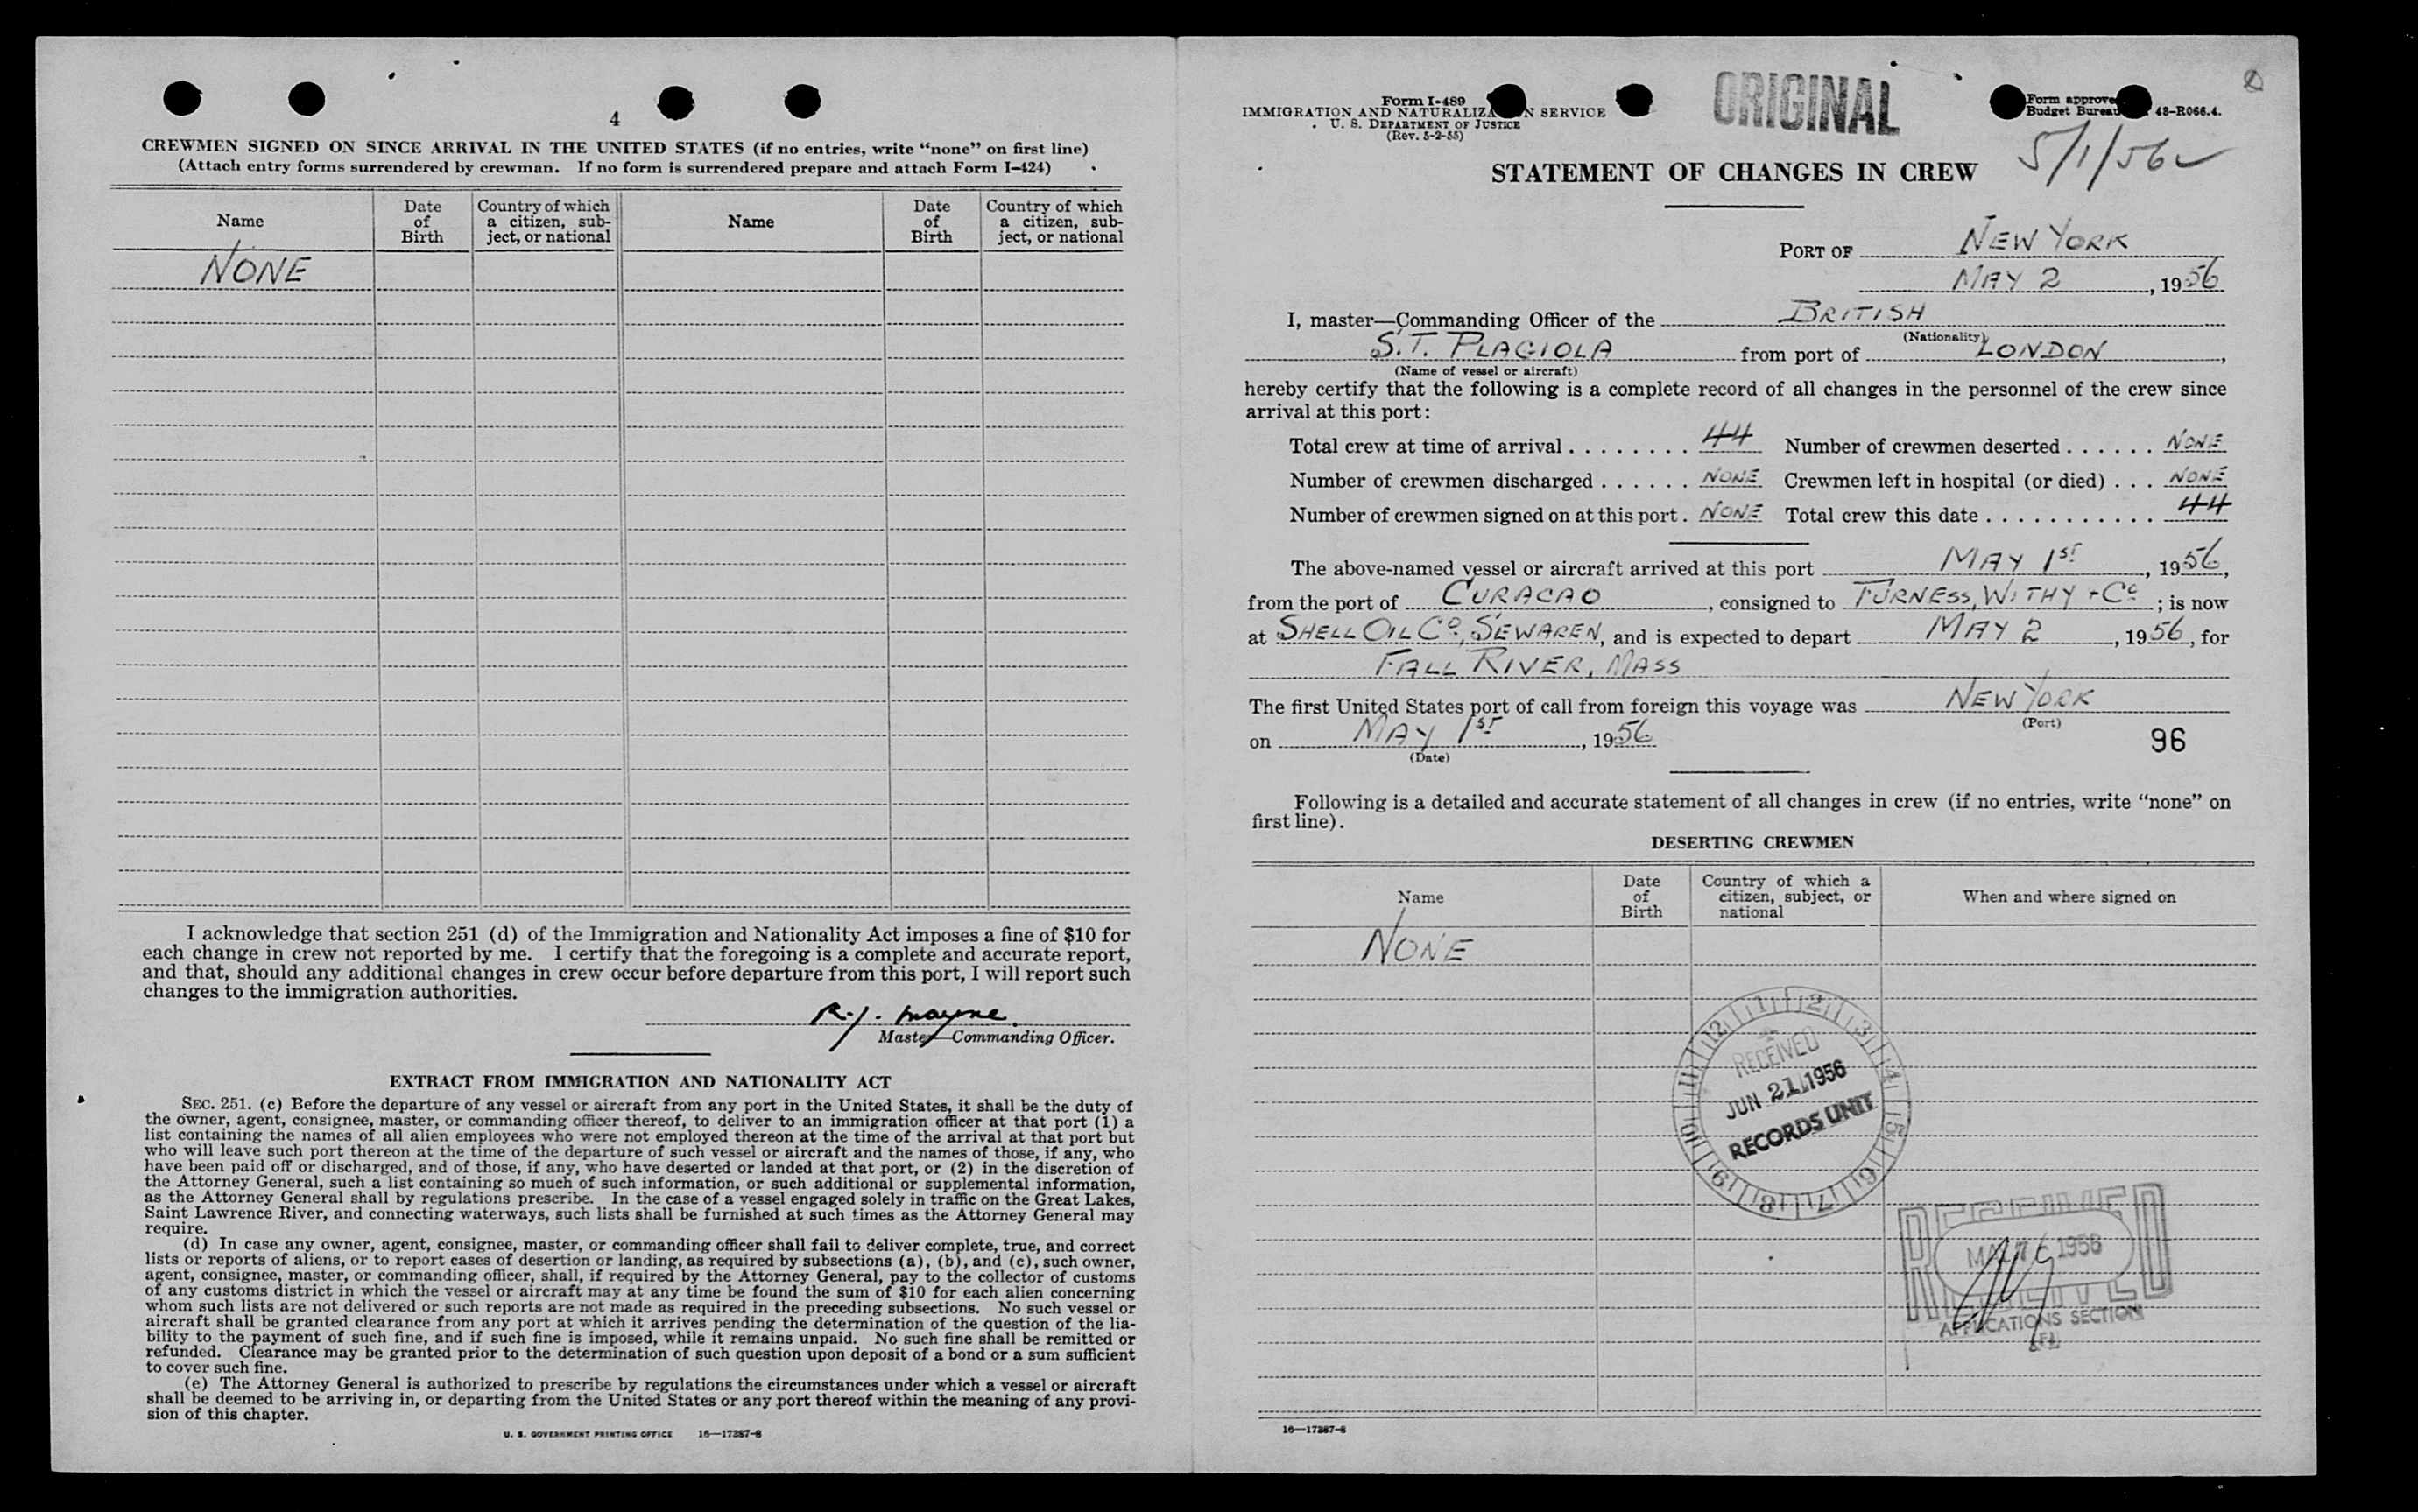 4
CREWMEN SIGNED ON SINCE ARRIVAL IN THE UNITED STATES (if no entries, write “none” on first line)
(Attach entry forms surrendered by crewman. If no form is surrendered prepare and attach Form I-424)
Name
Date of Birth
Country of which a citizen, subject, or national
Name
Date of Birth
Country of which a citizen, subject, or national
NONE
I acknowledge that section 251 (d) of the Immigration and Nationality Act imposes a fine of $10 for
each change in crew not reported by me. I certify that the foregoing is a complete and accurate report,
and that, should any additional changes in crew occur before departure from this port, I will report such
changes to the immigration authorities.
R.J. Mayne.
Master—Commanding Officer.
EXTRACT FROM IMMIGRATION AND NATIONALITY ACT
SEC. 251. (c) Before the departure of any vessel or aircraft from any port in the United States, it shall be the duty of
the owner, agent, consignee, master, or commanding officer thereof, to deliver to an immigration officer at that port (1) a
list containing the names of all alien employees who were not employed thereon at the time of the arrival at that port but
who will leave such port thereon at the time of the departure of such vessel or aircraft and the names of those, if any, who
have been paid off or discharged, and of those, if any, who have deserted or landed at that port, or (2) in the discretion of
the Attorney General, such a list containing so much of such information, or such additional or supplemental information,
as the Attorney General shall by regulations prescribe. In the case of a vessel engaged solely in traffic on the Great Lakes,
Saint Lawrence River, and connecting waterways, such lists shall be furnished at such times as the Attorney General may
require.
(d) In case any owner, agent, consignee, master, or commanding officer shall fail to deliver complete, true, and correct
lists or reports of aliens, or to report cases of desertion or landing, as required by subsections (a), (b), and (c), such owner,
agent, consignee, master, or commanding officer, shall, if required by the Attorney General, pay to the collector of customs
of any customs district in which the vessel or aircraft may at any time be found the sum of $10 for each alien concerning
whom such lists are not delivered or such reports are not made as required in the preceding subsections. No such vessel or
aircraft shall be granted clearance from any port at which it arrives pending the determination of the question of the lia-
bility to the payment of such fine, and if such fine is imposed, while it remains unpaid. No such fine shall be remitted or
refunded. Clearance may be granted prior to the determination of such question upon deposit of a bond or a sum sufficient
to cover such fine.
(e) The Attorney General is authorized to prescribe by regulations the circumstances under which a vessel or aircraft
shall be deemed to be arriving in, or departing from the United States or any port thereof within the meaning of any provi-
sion of this chapter.
U. S. GOVERNMENT PRINTING OFFICE 16—17287-8
Form I-489
IMMIGRATION AND NATURALIZATION SERVICE
U. S. DEPARTMENT OF JUSTICE
(Rev. 5-2-55)
ORIGINAL
Form approve
Budget Bureau 43-R066.4.
5/1/56
STATEMENT OF CHANGES IN CREW
PORT OF NEW YORK
MAY 2, 1956
I, master—Commanding Officer of the BRITISH
(Nationality)
S.T. PLAGIOLA from port of LONDON,
(Name of vessel or aircraft)
hereby certify that the following is a complete record of all changes in the personnel of the crew since
arrival at this port:
Total crew at time of arrival . . . . . . . . 44 Number of crewmen deserted . . . . . . NONE
Number of crewmen discharged . . . . . . NONE Crewmen left in hospital (or died) . . . NONE
Number of crewmen signed on at this port . NONE Total crew this date . . . . . . . . . . . 44
The above-named vessel or aircraft arrived at this port MAY 1st, 1956,
from the port of CURACAO, consigned to FURNESS, WITHY + Co; is now
at SHELL OIL Co, SEWAREN, and is expected to depart MAY 2, 1956, for
FALL RIVER, MASS
The first United States port of call from foreign this voyage was NEW YORK
(Port)
on MAY 1st, 1956
(Date)
96
Following is a detailed and accurate statement of all changes in crew (if no entries, write “none” on
first line).
DESERTING CREWMEN
Name
Date of Birth
Country of which a citizen, subject, or national
When and where signed on
NONE
12 1 2 3 4 5 6 7 8 9 10 11
RECEIVED
JUN 21 1956
RECORDS UNIT
RECEIVED
1956
RECEIVED
APPLICATIONS SECTION
16—17287-8